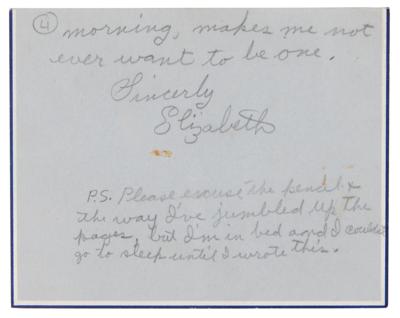 ④ morning, makes me not
ever want to be one.
Sincerly
Elizabeth
P.S. Please excuse the pencil &
the way I've jumbled up the
pages, but I'm in bed and I couldn't
go to sleep until I wrote this.